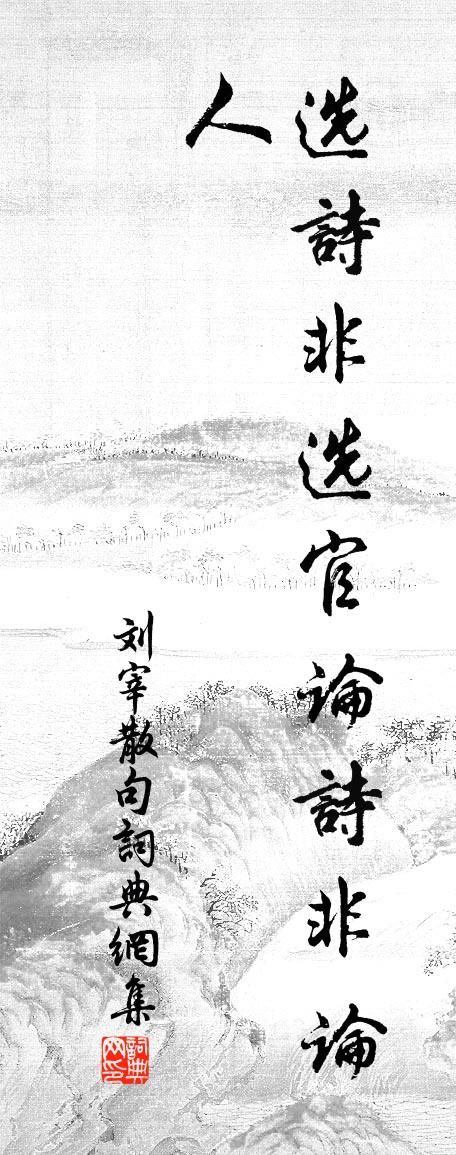 选詩非选官論詩非論
人
刘宰散句詞典網集
詞典网印